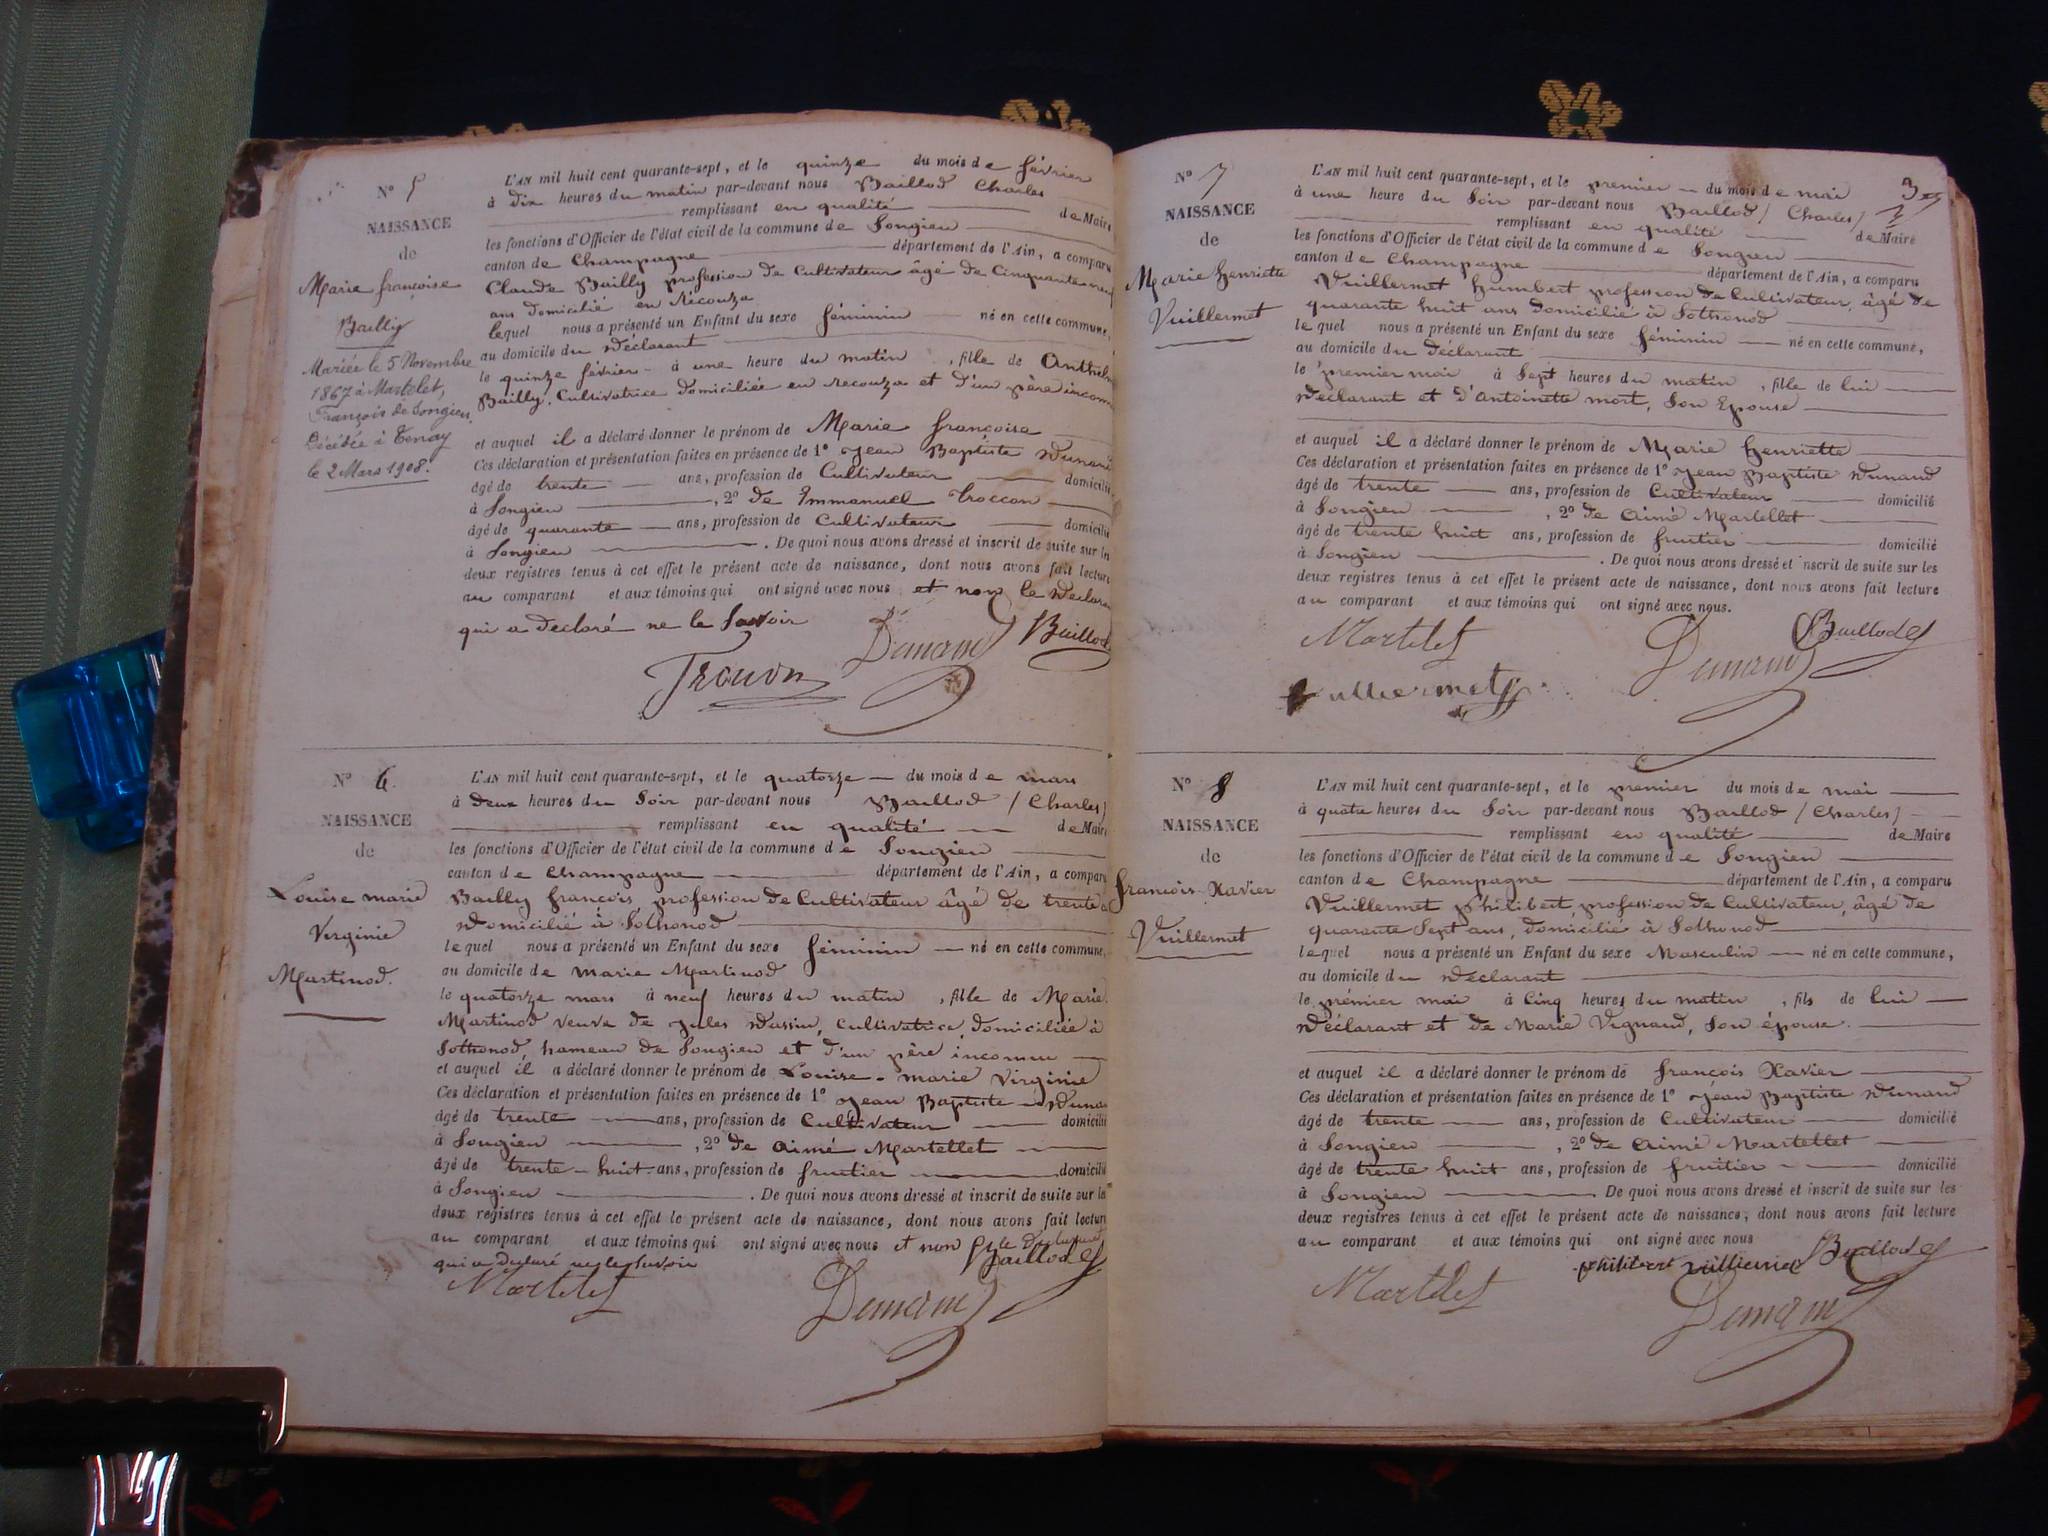 N° 5
NAISSANCE
de
Marie françoise
Bailly
Mariée le 5 Novembre
1867 à Martelet,
François de Songieu.
Décédée à Tenay
le 2 Mars 1908.
L'AN mil huit cent quarante-sept, et le quinze du mois de février
à dix heures du matin par-devant nous Baillod Charles
remplissant en qualité de Maire
les fonctions d'Officier de l'état civil de la commune de Songieu
canton de Champagne département de l'Ain, a comparu
Claude Bailly profession de Cultivateur âgé de Cinquante neuf
ans domicilié en Recouza
lequel nous a présenté un Enfant du sexe féminin né en cette commune,
au domicile du déclarant
le quinze février à une heure du matin, fille de Anthelm
Bailly, Cultivatrice domiciliée en recouza et d'un père inconn
et auquel il a déclaré donner le prénom de Marie françoise
Ces déclaration et présentation faites en présence de 1° Jean Baptiste Dunand
âgé de trente ans, profession de Cultivateur domicilié
à Songieu, 2° de Emmanuel Troccon
âgé de quarante ans, profession de Cultivateur domicilié
à Songieu. De quoi nous avons dressé et inscrit de suite sur les
deux registres tenus à cet effet le présent acte de naissance, dont nous avons fait lecture
au comparant et aux témoins qui ont signé avec nous et non le déclara
qui a declaré ne le Savoir
Dunand Baillod
N° 6
NAISSANCE
de
Louise marie
Virginie
Martinod.
L'AN mil huit cent quarante-sept, et le quatorze du mois de mars
à deux heures du Soir par-devant nous Baillod / Charles /
remplissant en qualité de Maire
les fonctions d'Officier de l'état civil de la commune de Songieu
canton de Champagne département de l'Ain, a comparu
Bailly françois profession de Cultivateur âgé de trente
domicilié à Sothonod
lequel nous a présenté un Enfant du sexe féminin né en cette commune,
au domicile de marie Martinod
le quatorze mars à neuf heures du matin, fille de Marie
Martinod veuve de Jules Dassin, Cultivatrice, domiciliée à
Sothonod, hameau de Songieu et d'un père inconnu
et auquel il a déclaré donner le prénom de Louise - marie Virginie
Ces déclaration et présentation faites en présence de 1° Jean Baptiste Duna
âgé de trente ans, profession de Cultivateur domicilié
à Songieu, 2° de Aimé Martellet
âgé de trente-huit ans, profession de fruitier domicilié
à Songieu. De quoi nous avons dressé et inscrit de suite sur les
deux registres tenus à cet effet le présent acte de naissance, dont nous avons fait lecture
au comparant et aux témoins qui ont signé avec nous et non le declarant
qui a declaré ne le Savoir Baillod
Martelet Dunand
N° 7
NAISSANCE
de
Marie henriette
Vuillermet
L'AN mil huit cent quarante-sept, et le premier du mois de mai
à une heure du Soir par-devant nous Baillod / Charles /
remplissant en qualité de Maire
les fonctions d'Officier de l'état civil de la commune de Songieu
canton de Champagne département de l'Ain, a comparu
Vuillermet humbert profession de Cultivateur, âgé de
quarante huit ans domicilié à Sothonod
lequel nous a présenté un Enfant du sexe féminin né en cette commune,
au domicile du déclarant
le premier mai à Sept heures du matin, fille de lui
déclarant et d'Antoinette mort, Son Epouse
et auquel il a déclaré donner le prénom de Marie henriette
Ces déclaration et présentation faites en présence de 1° Jean Baptiste Dunand
âgé de trente ans, profession de Cultivateur domicilié
à Songieu, 2° de Aimé Martellet
âgé de trente huit ans, profession de fruitier domicilié
à Songieu. De quoi nous avons dressé et inscrit de suite sur les
deux registres tenus à cet effet le présent acte de naissance, dont nous avons fait lecture
au comparant et aux témoins qui ont signé avec nous.
Martelet Dunand Baillod
N° 8
NAISSANCE
de
françois Xavier
Vuillermet
L'AN mil huit cent quarante-sept, et le premier du mois de mai
à quatre heures du Soir par-devant nous Baillod / Charles /
remplissant en qualité de Maire
les fonctions d'Officier de l'état civil de la commune de Songieu
canton de Champagne département de l'Ain, a comparu
Vuillermet philibert profession de Cultivateur, âgé de
quarante Sept ans, domicilié à Sothonod
lequel nous a présenté un Enfant du sexe Masculin né en cette commune,
au domicile du déclarant
le prémier mai à Cinq heures du matin, fils de lui
Déclarant et de Marie Vignaud, Son épouse.
et auquel il a déclaré donner le prénom de françois Xavier
Ces déclaration et présentation faites en présence de 1° Jean Baptiste Dunand
âgé de trente ans, profession de Cultivateur domicilié
à Songieu, 2° de Aimé Martellet
âgé de trente huit ans, profession de fruitier domicilié
à Songieu. De quoi nous avons dressé et inscrit de suite sur les
deux registres tenus à cet effet le présent acte de naissance, dont nous avons fait lecture
au comparant et aux témoins qui ont signé avec nous
Martelet philibert Baillod
Dunand